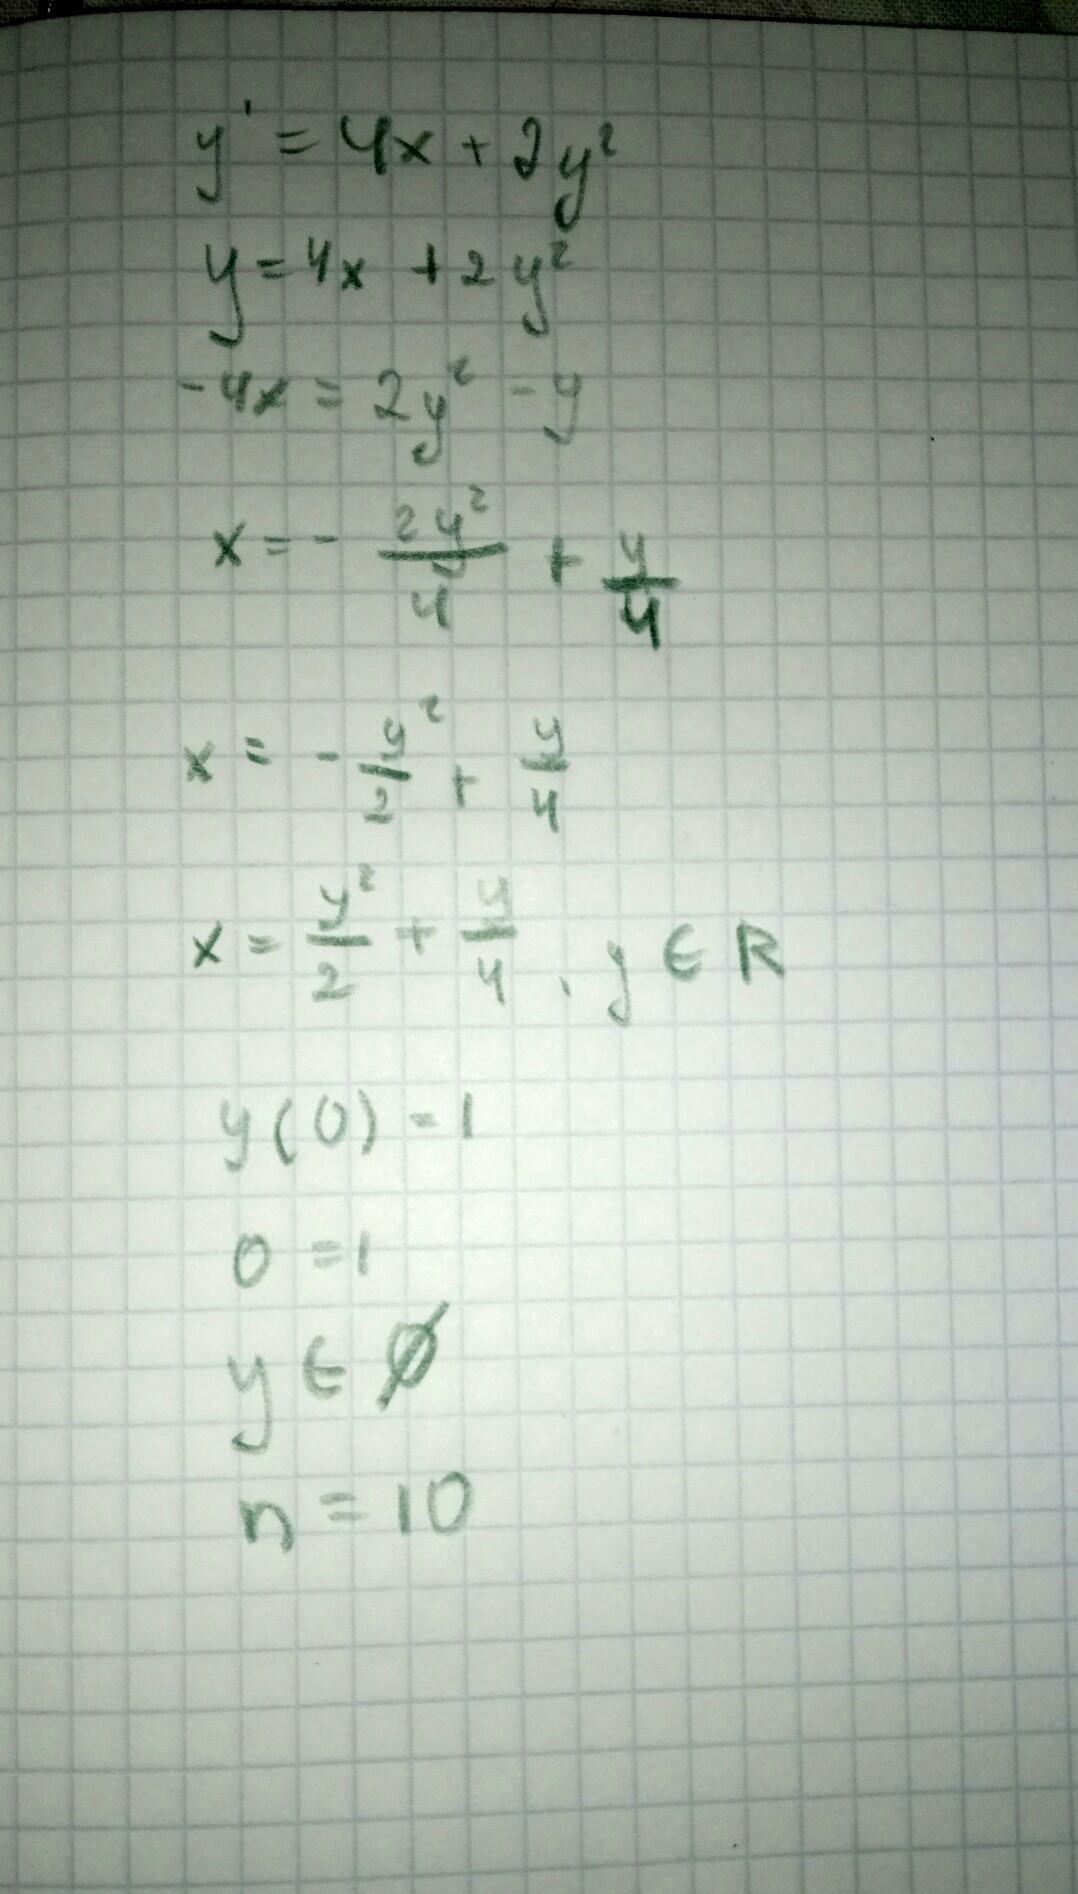 y' = 4x + 2y²
y = 4x + 2y²
-4x = 2y² - y
x = - 2y²/4 + y/4
x = - y²/2 + y/4
x = y²/2 + y/4, y ∈ R
y(0) = 1
0 = 1
y ∈ Ø
n = 10